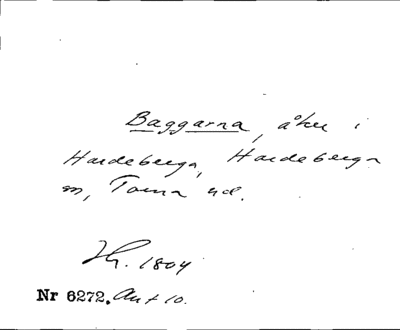 Baggarna, åker i
Hardeberga, Hardeberga
sn, Torna hd.
1804
Nr 6272. Akt 10.